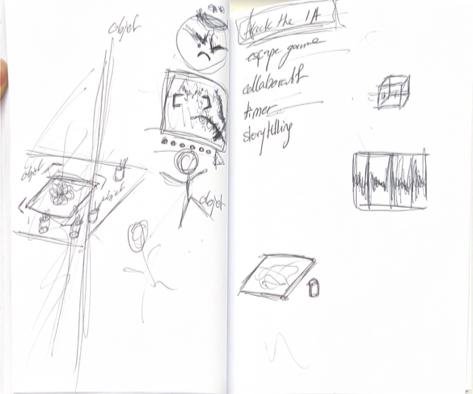 objet
objet
objet
objet
Hack the IA
escape game
collaboratif
timer
storytelling